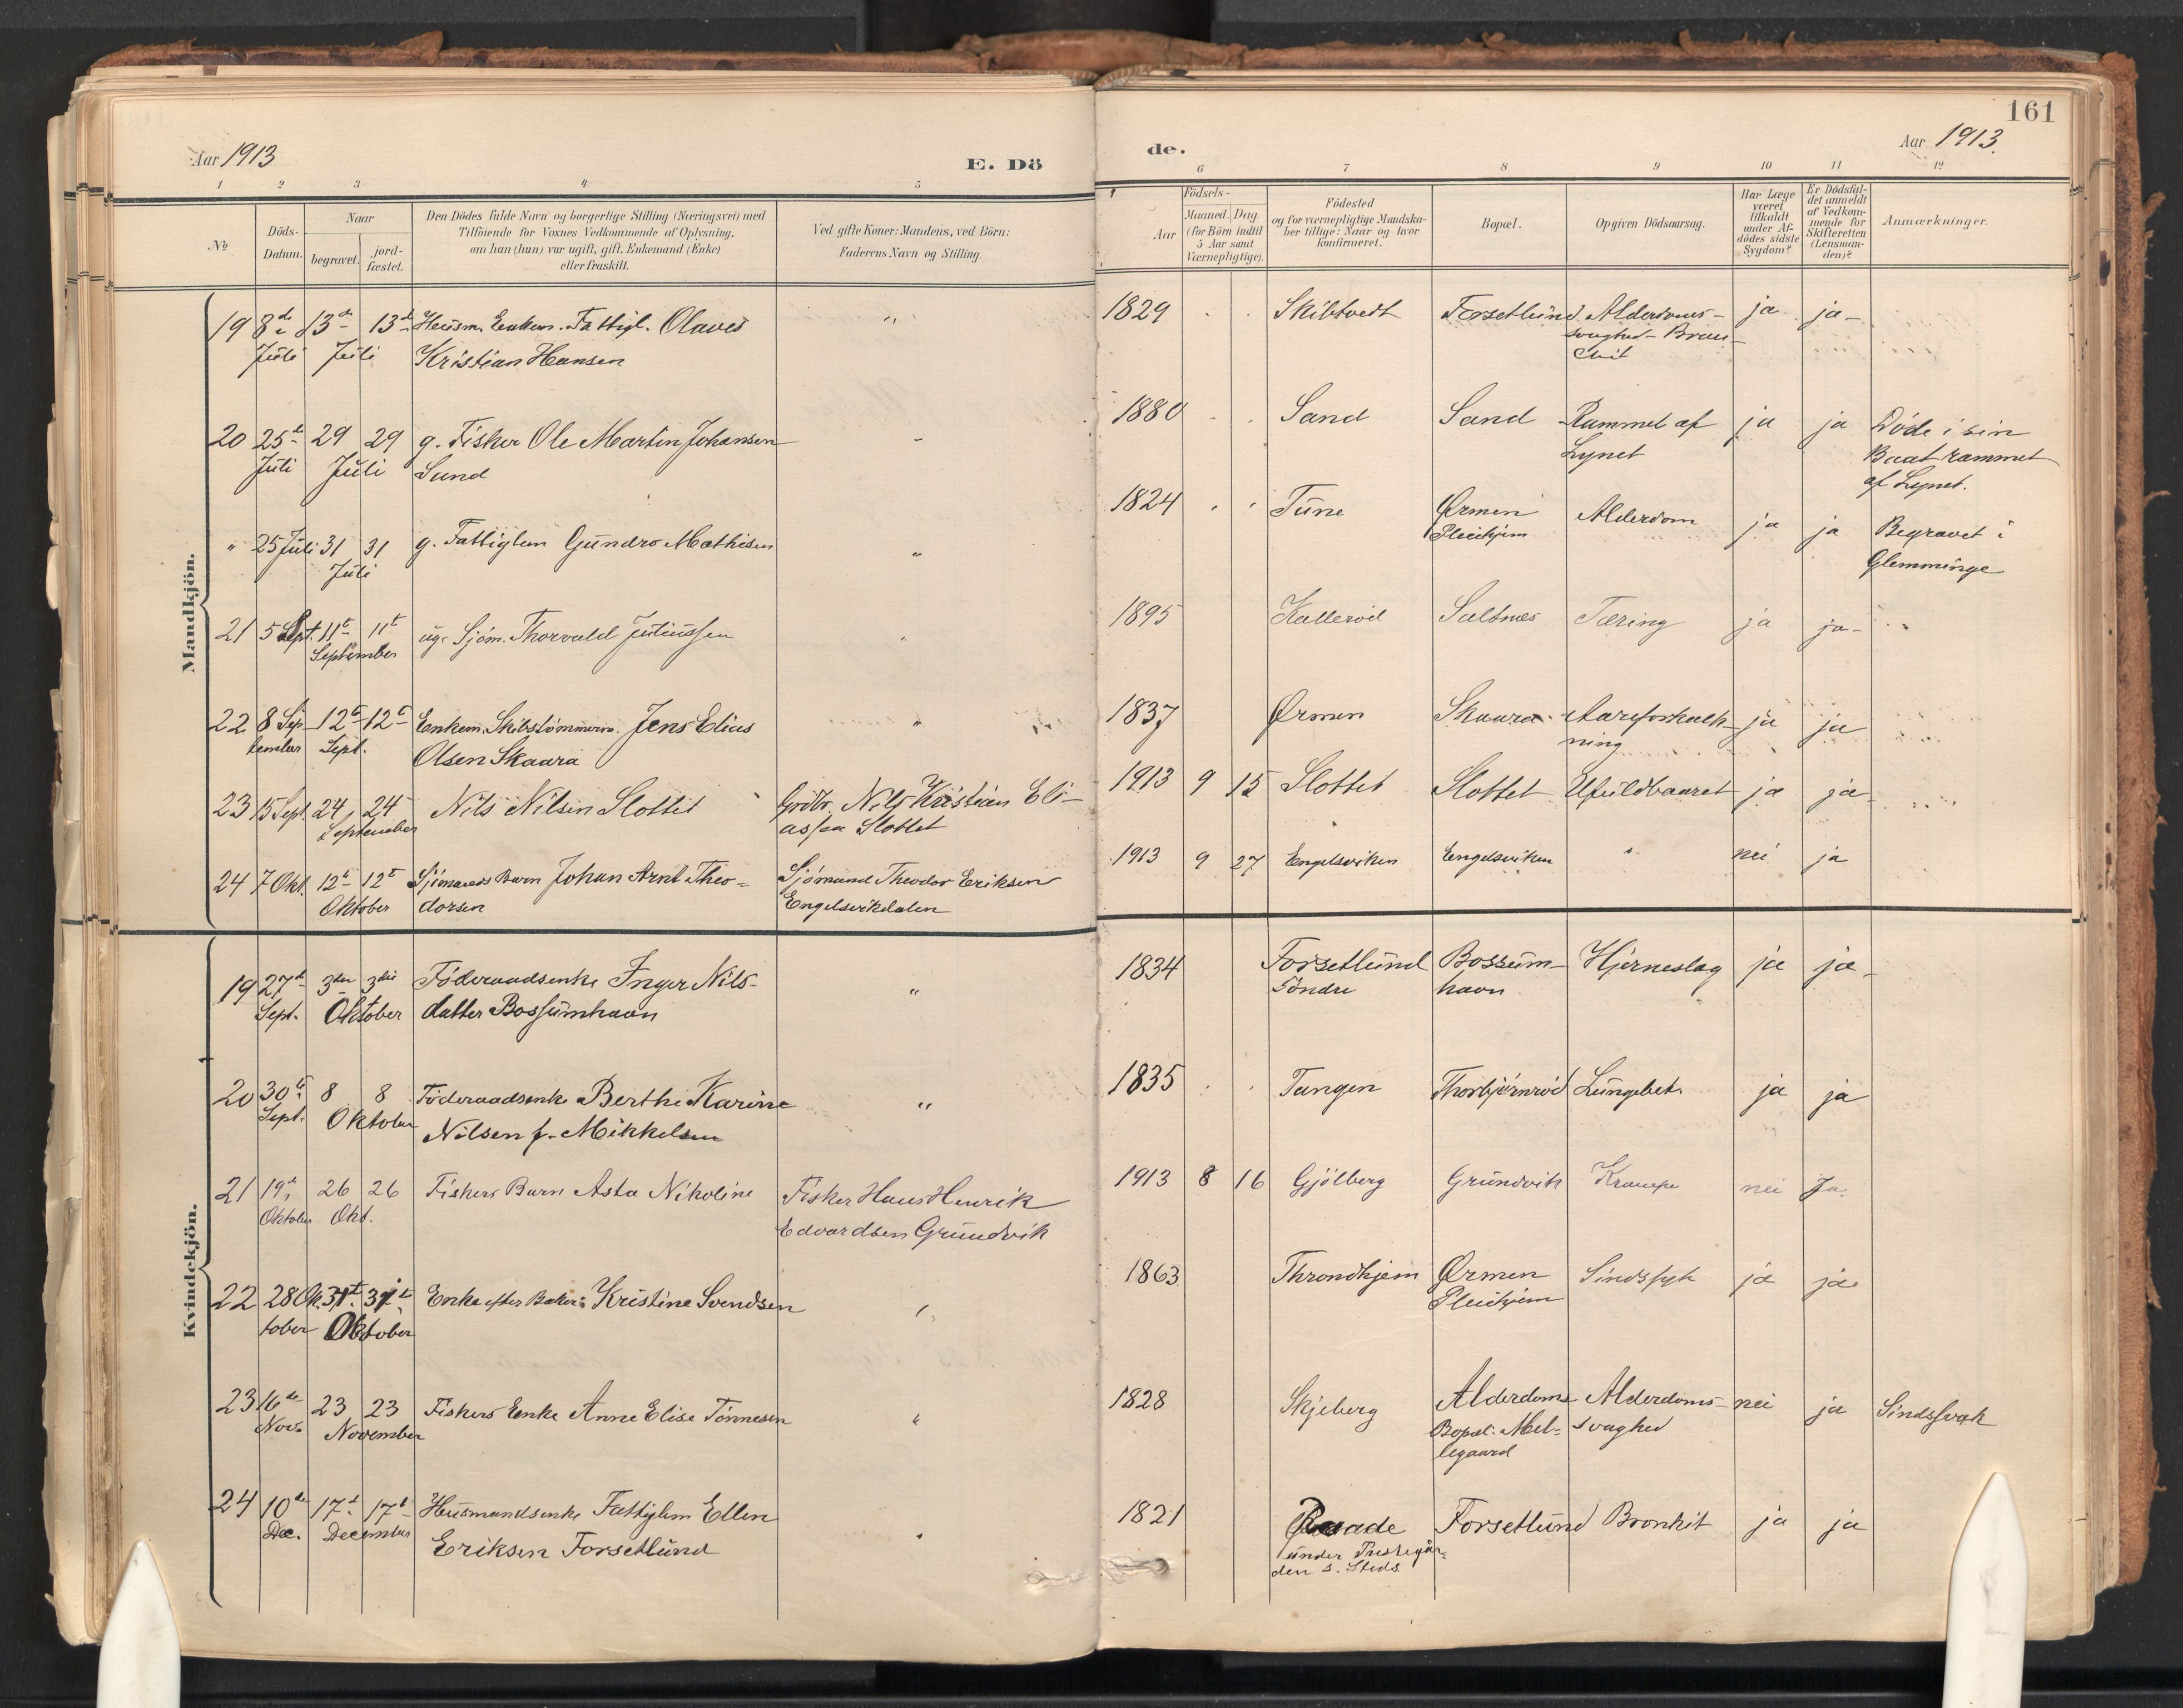 Aar 1913
E. Dö
1 2 3 4 5
№
Döds-
Datum.
Naar
begravet.
jord-
fæstet.
Den Dödes fulde Navn og borgerlige Stilling (Næringsvei) med
Tilföiende for Voxnes Vedkommende af Oplysning,
om han (hun) var ugift, gift, Enkemand (Enke)
eller fraskilt.
Ved gifte Koner: Mandens, ved Börn:
Faderens Navn og Stilling.
Mandkjön.
19 8de 13de 13de Husm. Enkem. Fattigl. Olaves "
Juli Juli Kristian Hansen
20 25de 29 29 g. Fisker Ole Martin Johansen "
Juli Juli Sand
" 25 Juli 31 31 g. Fattiglem Gundro Mathisen "
Juli
21 5 Sept. 11te 11te ug. Sjöm. Thorvald Juliussen "
September
22 8 Sep- 12te 12te Enkem. Skibstömmerm. Jens Elias "
tember Sept. Olsen Skaara
23 15 Sept. 24 24 Nils Nilsen Slottet Grdbr. Nils Kristian Eli-
September assen Slottet
24 7 Okt. 12te 12te Sjömands Barn Johan Arnt Theo= Sjömand Theodor Eriksen
Oktober dorsen Engelsvikdalen
Kvindekjön.
19 27de 3die 3die Föderaadsenke Inger Nils- "
Sept. Oktober datter Bossumhavn
20 30te 8 8 Föderaadsenke Berthe Karine "
Sept. Oktober Nilsen f. Mikkelsen
21 19de 26 26 Fiskers Barn Asta Nikoline Fisker Hans Henrik
Oktober Okt. Edvardsen Grundvik
22 28 Ok 31te 31te Enke efter Baker: Kristine Svendsen "
tober Oktober
23 16de 23 23 Fiskers Enke Anne Elise Tönnesen "
Nov. November
24 10de 17de 17de Husmandsenke Fattiglem Ellen "
Dec. December Eriksen Forsetlund
161
de.
Aar 1913.
6 7 8 9 10 11 12
Födsels-
Aar
Maaned. Dag.
(for Börn indtil
5 Aar samt
Værnepligtige).
Födested
og for værnepligtige Mandska-
ber tillige: Naar og hvor
konfirmeret.
Bopæl.
Opgiven Dödsaarsag.
Har Læge
været
tilkaldt
under Af-
dödes sidste
Sygdom?
Er Dödsfal-
det anmeldt
af Vedkom-
mende for
Skifteretten
(Lensman-
den)?
Anmærkninger.
1829 Skibtvedt Forsetlund Alderdoms- ja ja
svaghed-Bron-
chit
1880 Sand Sand Rammet af ja ja Döde i sin
Lynet Baat rammet
af Lynet.
1824 Tune Ørmen Alderdom ja ja Begravet i
Pleiehjem Glemminge
1895 Kalleröd Saltnes Tæring ja ja
1837 Ørmen Skaara Aareforkalk- ja ja
ning
1913 9 15 Slottet Slottet Ufuldbaaret ja ja
1913 9 27 Engelsviken Engelsviken " nei ja
1834 Forsetlund Bossum- Hjerneslag ja ja
Söndre havn
1835 Tangen Thorbjörnröd Lungebet. ja ja
1913 8 16 Gjölberg Grundvik Krampe nei Ja.
1863 Throndhjem Ørmen Sindssyk ja ja
Pleiehjem
1828 Skjeberg Alderdoms Alderdoms- nei ja Sindssvak
Bopæl: Mel= svaghed
legaard
1821 Raade Forsetlund Bronkit ja ja
under Prestegår=
den s. Steds